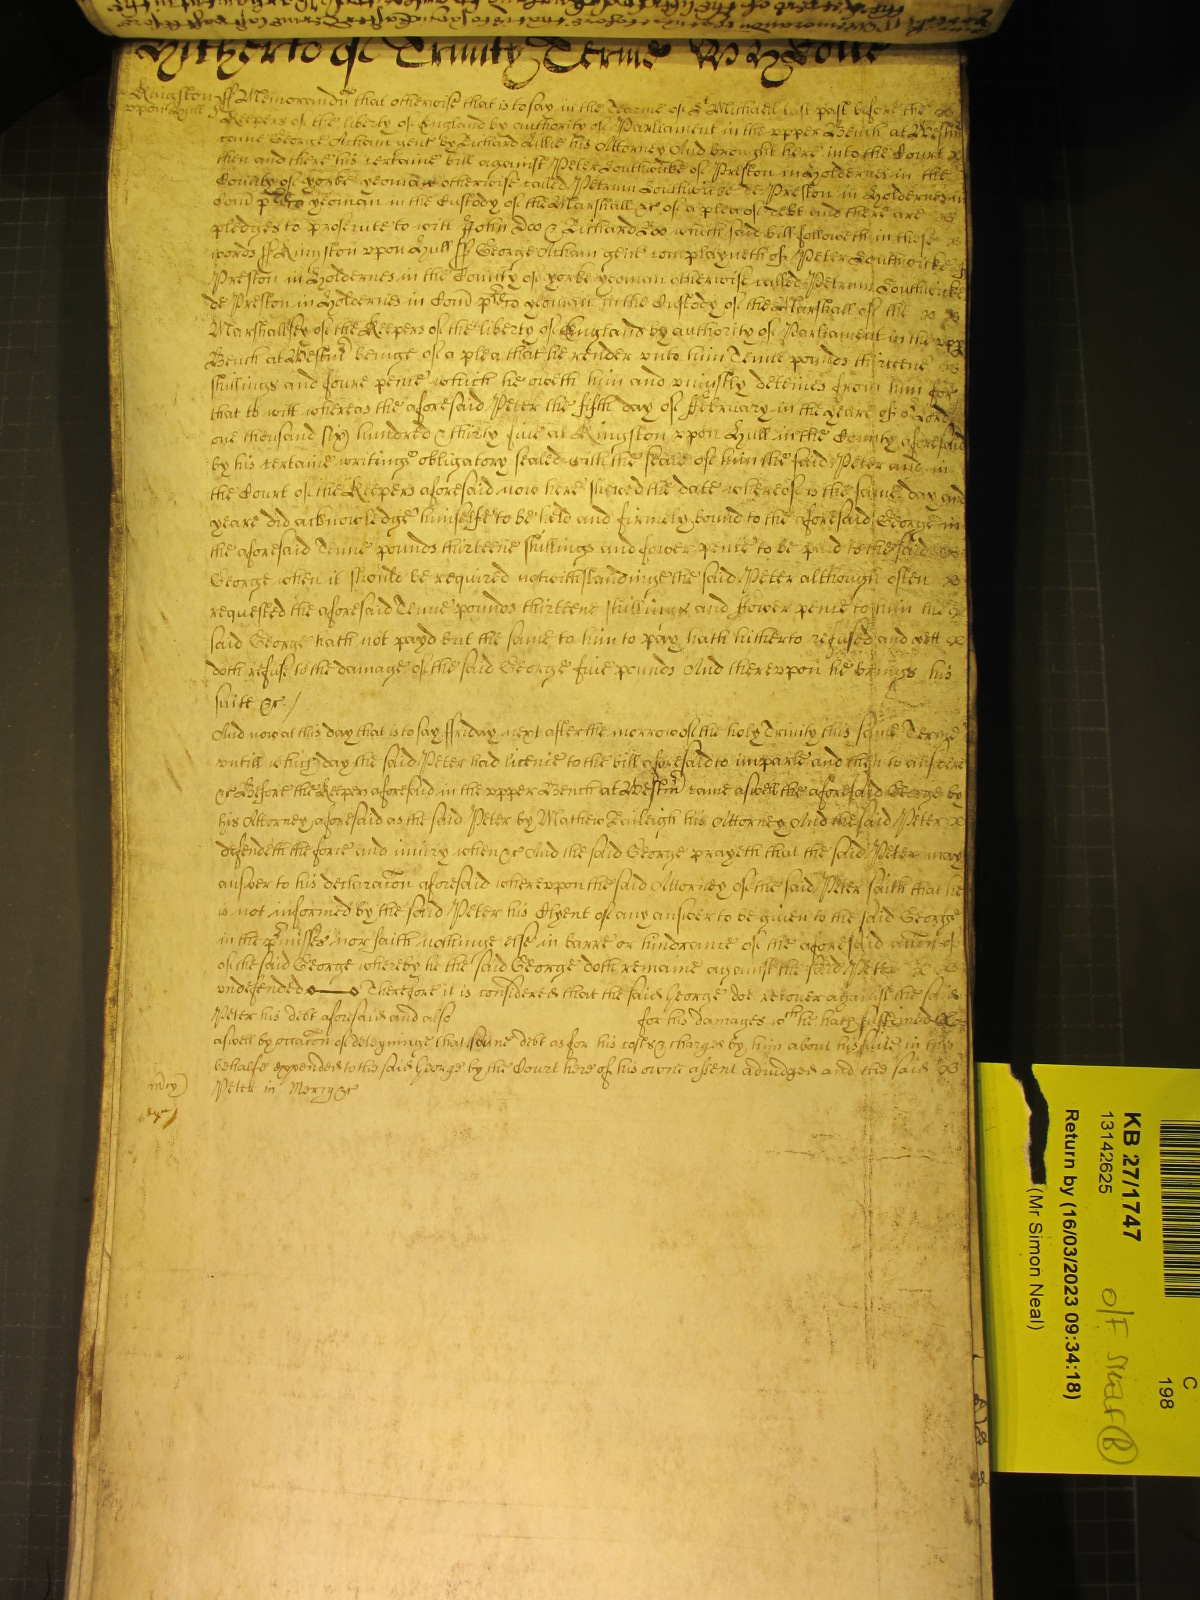 Hitherto of Trinity Terme
Kingston ss Memorandu that otherwise that is to say in the Tearme of St Michaell last past before the
upon Hull
Keepers of the liberty of England by authority of Parliament in the upper Bench at Westm
came George Acham gent by Richard Lillie his Attorney And brought here into the Court
then and there his certaine bill against Peter Southwicke of Preston in Holdernes in the
County of yorke yeoman otherwise called Petrum Southwicke de Preston in Holdernes in
Com pdto yeoman in the Custody of the Marshall &c of a plea of debt and there are
pledges to prosecute to witt John Doo & Richard Roo which said bill followeth in these
words ss Kingston upon Hull ss George Acham gent complayneth of Peter Southwicke of
Preston in Holdernes in the County of yorke yeoman otherwise called Petrum Southwicke
de Preston in Holdernes in Com pdto yeoman in the Custody of the Marshall of the
Marshallsey of the Keepers of the liberty of England by authority of Parliament in the upp
Bench at Westm beinge of a plea that he render unto him Tenne pounds thirteene
shillings and foure pence which he oweth him and uniustly deteines from him for
that to witt whereas the aforesaid Peter the fifth day of February in the yeare of or Lord
one thousand six hundred & thirty five at Kingston upon Hull in the County aforesaid
by his certaine writinge obligatory sealed with the seale of him the said Peter and in
the Court of the Keepers aforesaid now here shewed the date whereof is the same day and
yeare did acknowledge himselfe to be held and firmely bound to the aforesaid George in
the aforesaid Tenne pounds thirteene shillings and fower pence to be paid to the said
George when it should be required notwithstandinge the said Peter although often
requested the aforesaid Tenne pounds thirteene shillings and fower pence to him the
said George hath not payd but the same to him to pay hath hitherto refused and yett
doth refuse to the damage of the said George five pounds And thereupon he brings his
suite &c /
And now at this day that is to say Friday next after the morrow of the holy Trinity this same Terme
untill which day the said Peter had licence to the bill aforesaid to imparle and then to answere
&c Before the Keepers aforesaid in the upper Bench at Westm came aswell the aforesaid George by
his Attorney aforesaid as the said Peter by Mathew his Attorney And the said Peter
defendeth the force and iniury when &c And the said George prayeth that the said Peter may
answer to his declaracon aforesaid whereupon the said Attorney of the said Peter saith that he
is not informed by the said Peter his Clyent of any answer to be given to the said George
in the pmisses nor saith nothinge else in barre or hindrance of the aforesaid accon of
of the said George whereby he the said George doth remaine against the said Peter
undefended Therefore it is considered that the said George doe recover against the said
Peter his debt aforesaid and also for his damages wch he hath susteined
aswell by occacon of deteyninge that same debt as for his costs & charges by him about his suite in this
behalfe expended to the said George by the Court here of his owne assent adiudged and the said
Peter in Mercy &c
mcy
KB 27/1747
13142625
Return by (16/03/2023 09:34:18)
(Mr Simon Neal)
C
198